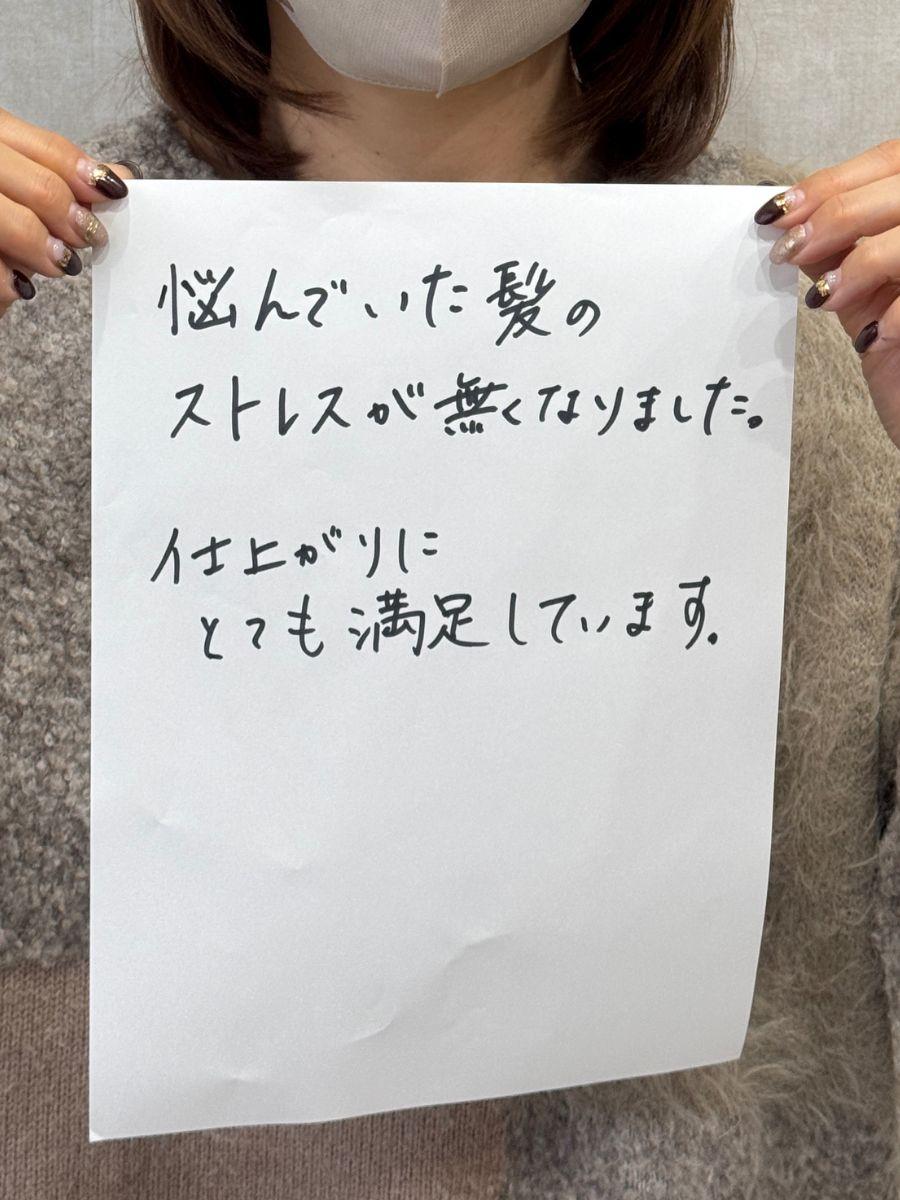 悩んでいた髪の
ストレスが無くなりました。
仕上がりに
とても満足しています。